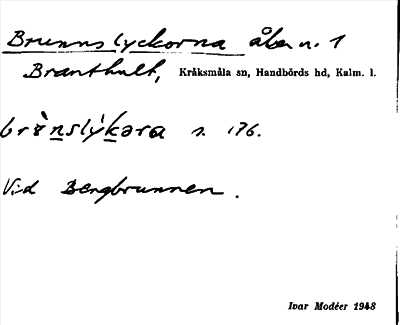 Brunnslyckorna åker n. 1
Branthult, Kråksmåla sn, Handbörds hd, Kalm. l.
brønslýkəra s. 176.
Vid Bergbrunnen.
Ivar Modéer 1948